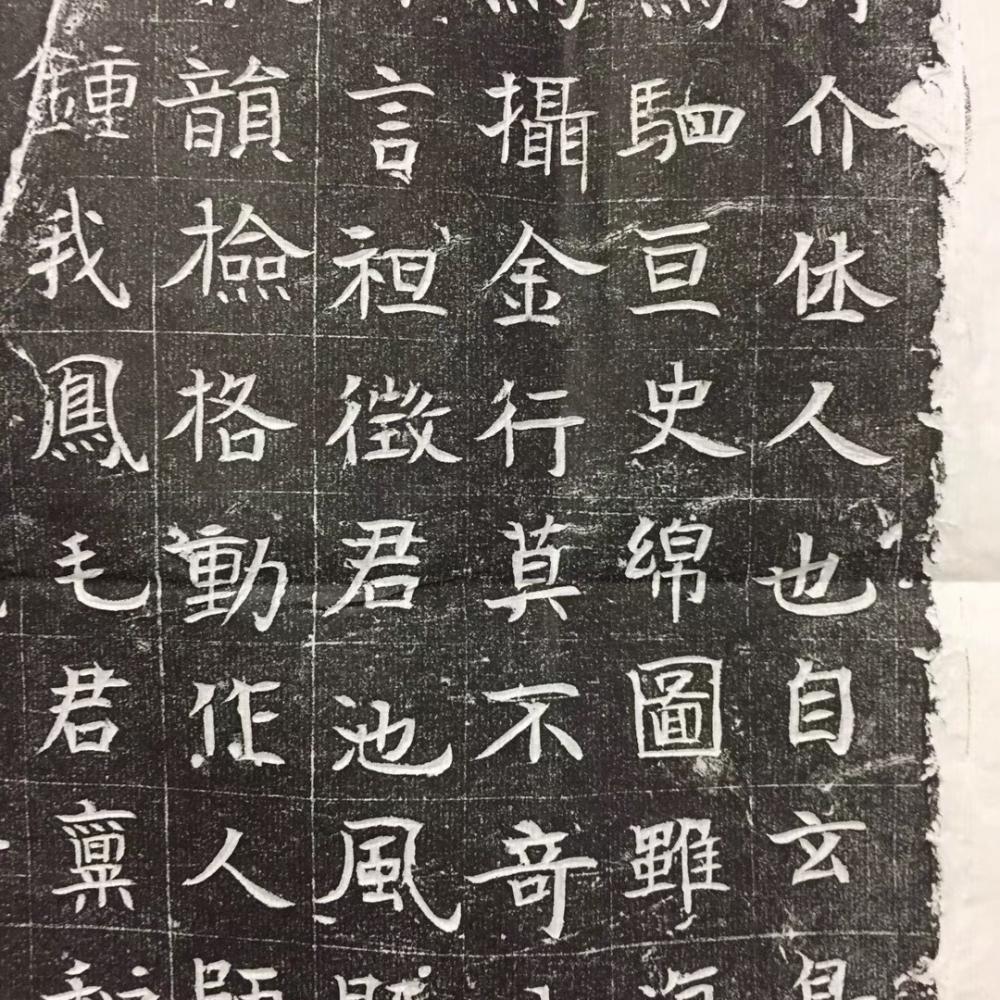 介休人也自玄
駟亘史綿圖雖
攝金行莫不奇
言祖徵君池風
韻檢格動作人
鍾我鳳毛君稟